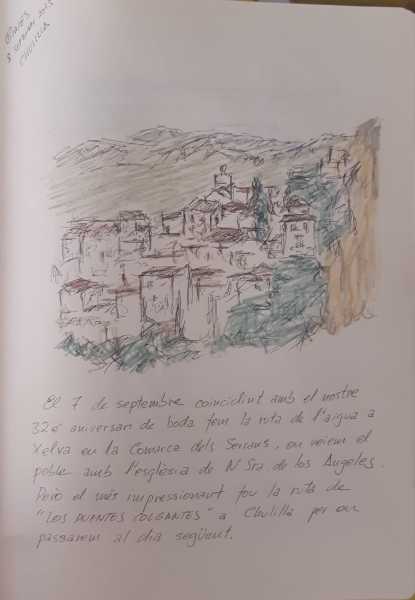 CHULILLA
El 7 de septembre coincidint amb el nostre
32è aniversari de boda fem la ruta de l'aigua a
Xelva en la Comarca dels Serrans, on veiem el
poble amb l'església de N Sra de los Angeles.
Però el més impressionant fou la ruta de
"LOS PUENTES COLGANTES" a Chulilla per on
passarem al dia següent.